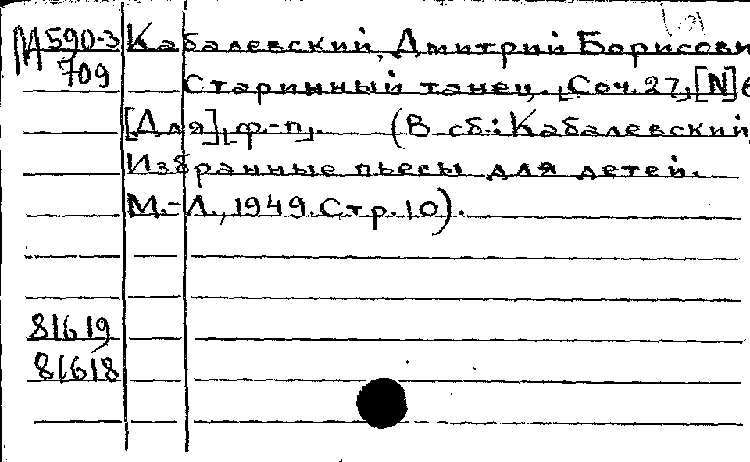 М590-3 Кабалевский, Дмитрий Борисови
709 Старинный танец. [Соч. 27, [N] 6
[Для] ф.-п. (В сб.: Кабалевский
Избранные пьесы для детей.
М.-Л., 1949. Стр. 10).
81619
81618